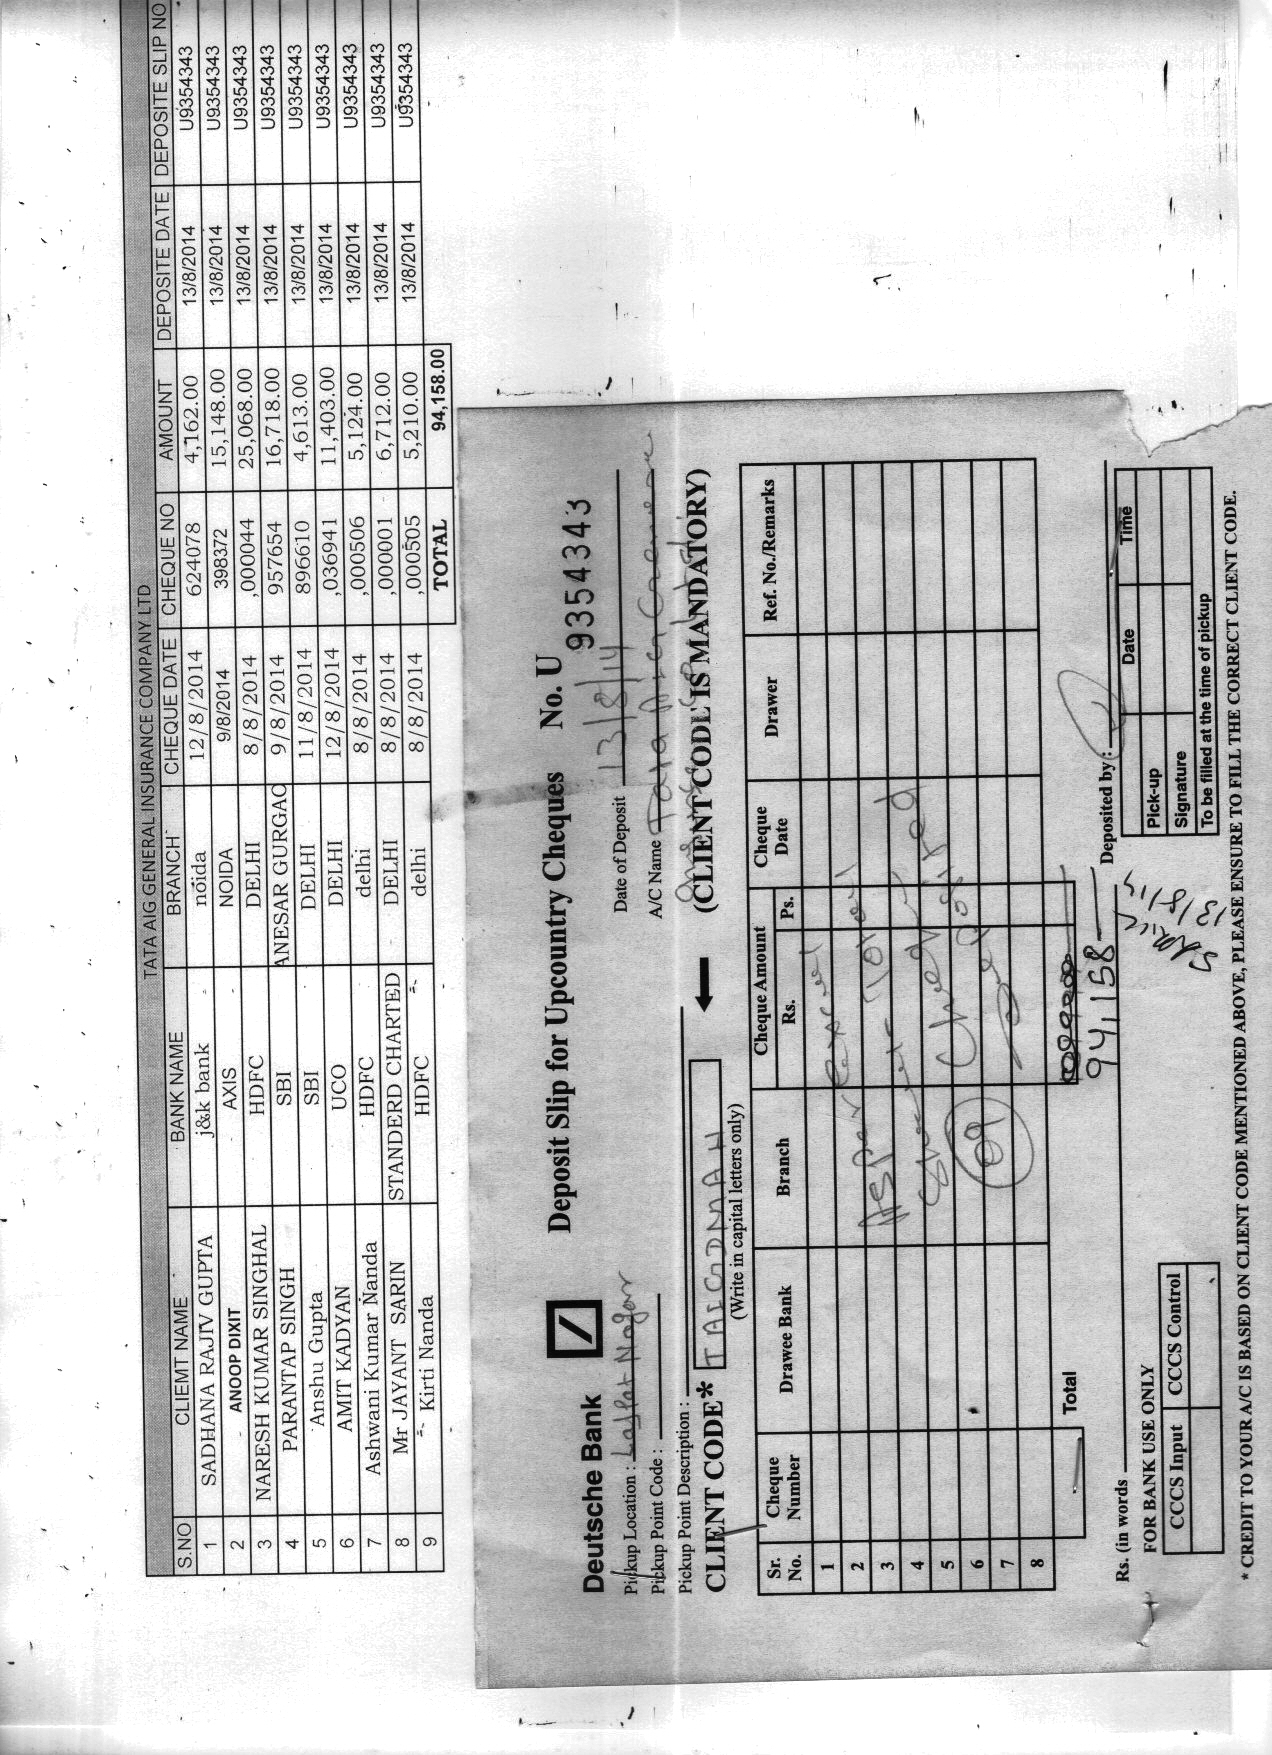 TATA AIG GENERAL INSURANCE COMPANY LTD
S.NO CLIEMT NAME BANK NAME BRANCH CHEQUE DATE CHEQUE NO AMOUNT DEPOSITE DATE DEPOSITE SLIP NO
1 SADHANA RAJIV GUPTA j&k bank noida 12/8/2014 624078 4,162.00 13/8/2014 U9354343
2 ANOOP DIXIT AXIS NOIDA 9/8/2014 398372 15,148.00 13/8/2014 U9354343
3 NARESH KUMAR SINGHAL HDFC DELHI 8/8/2014 ,000044 25,068.00 13/8/2014 U9354343
4 PARANTAP SINGH SBI ANESAR GURGAO 9/8/2014 957654 16,718.00 13/8/2014 U9354343
5 Anshu Gupta SBI DELHI 11/8/2014 896610 4,613.00 13/8/2014 U9354343
6 AMIT KADYAN UCO DELHI 12/8/2014 ,036941 11,403.00 13/8/2014 U9354343
7 Ashwani Kumar Nanda HDFC delhi 8/8/2014 ,000506 5,124.00 13/8/2014 U9354343
8 Mr JAYANT SARIN STANDERD CHARTED DELHI 8/8/2014 ,000001 6,712.00 13/8/2014 U9354343
9 Kirti Nanda HDFC delhi 8/8/2014 ,000505 5,210.00 13/8/2014 U9354343
TOTAL 94,158.00
Deutsche Bank Deposit Slip for Upcountry Cheques No. U 9354343
Pickup Location : Lajpat Nagar Date of Deposit 13/8/14
Pickup Point Code : A/C Name Tata AIG General
Pickup Point Description :
CLIENT CODE* TAIGDMAH (CLIENT CODE IS MANDATORY)
(Write in capital letters only)
Sr. No. Cheque Number Drawee Bank Branch Cheque Amount Rs. Ps. Cheque Date Drawer Ref. No./Remarks
1
2
3
4
5
6
7
8
As per
09
Total
94,158
Rs. (in words Deposited by :
13/8/14
FOR BANK USE ONLY
CCCS Input CCCS Control
Date Time
Pick-up
Signature
To be filled at the time of pickup
* CREDIT TO YOUR A/C IS BASED ON CLIENT CODE MENTIONED ABOVE, PLEASE ENSURE TO FILL THE CORRECT CLIENT CODE.